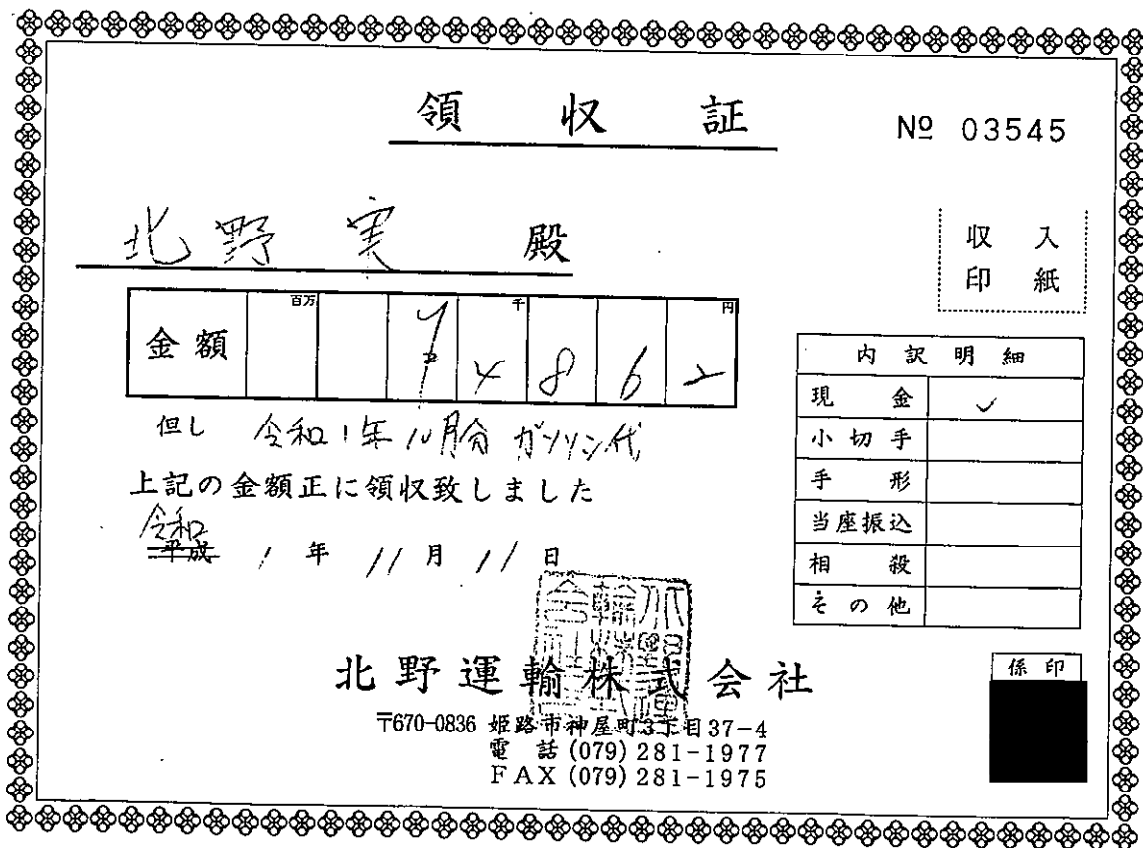 領収証
№ 03545
北野実 殿
収入
印紙
金額 百万 千 円
4 8 6 2
但し 令和1年10月分 ガソリン代
上記の金額正に領収致しました
令和
平成 1年 11月 11日
内訳明細
現金 ✓
小切手
手形
当座振込
相殺
その他
北野運輸株式会社
〒670-0836 姫路市神屋町3丁目37-4
電話 (079) 281-1977
FAX (079) 281-1975
係印